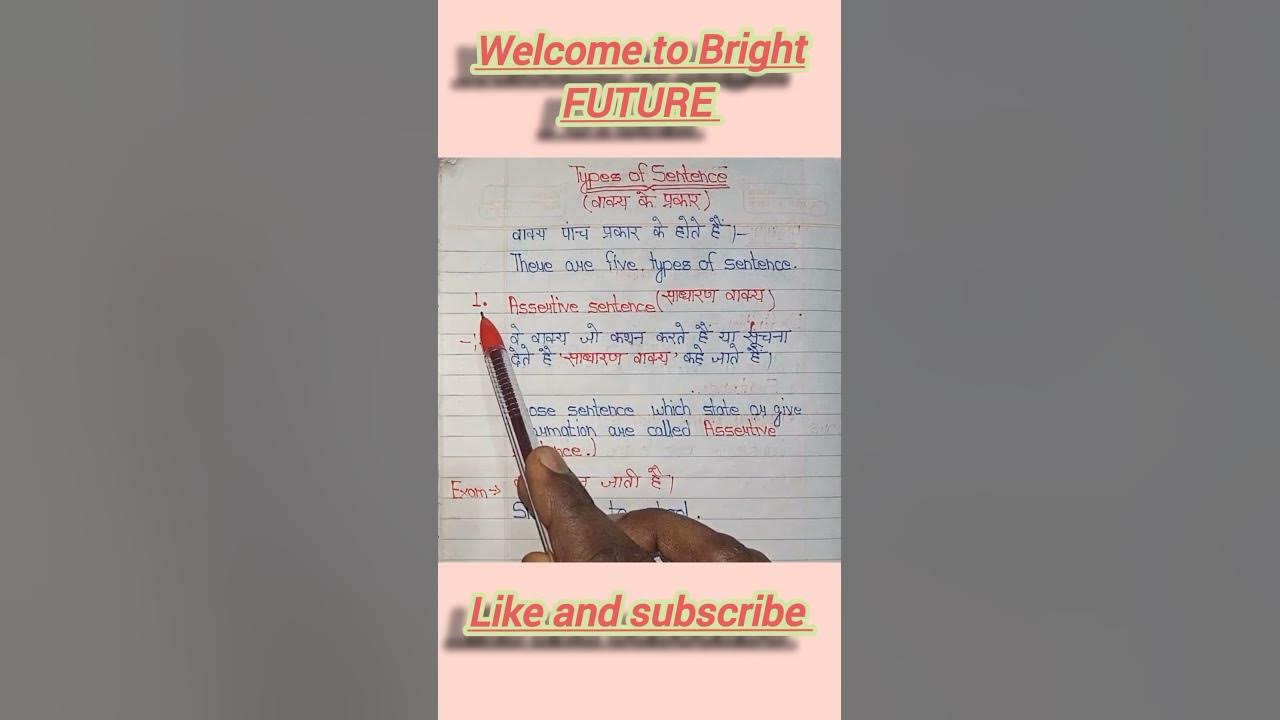 Welcome to Bright
FUTURE
Types of Sentence
(वाक्य के प्रकार)
वाक्य पांच प्रकार के होते हैं।-
There are five types of sentence.
1. Assertive sentence (साधारण वाक्य)
वे वाक्य जो कथन करते हैं या सूचना
देते है 'साधारण वाक्य' कहे जाते हैं।
sentence which state or give
are called Assertive
Exam जाती है।
to
Like and subscribe